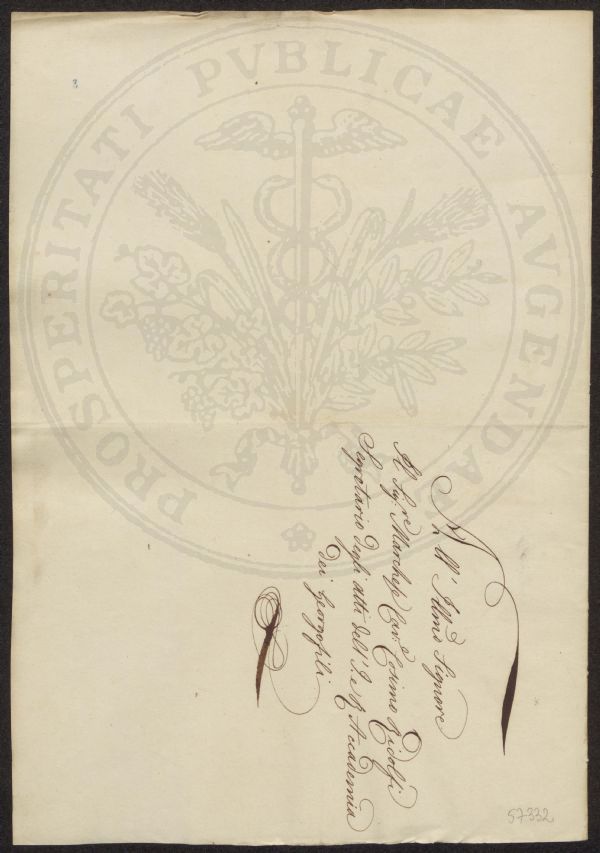 PROSPERITATI PVBLICAE AVGENDAE
3
All' Illmo Signore
Il Sigre Marchese Cave Cosimo Ridolfi
Segretario degli atti dell' I. e R. Accademia
dei Georgofili
57332